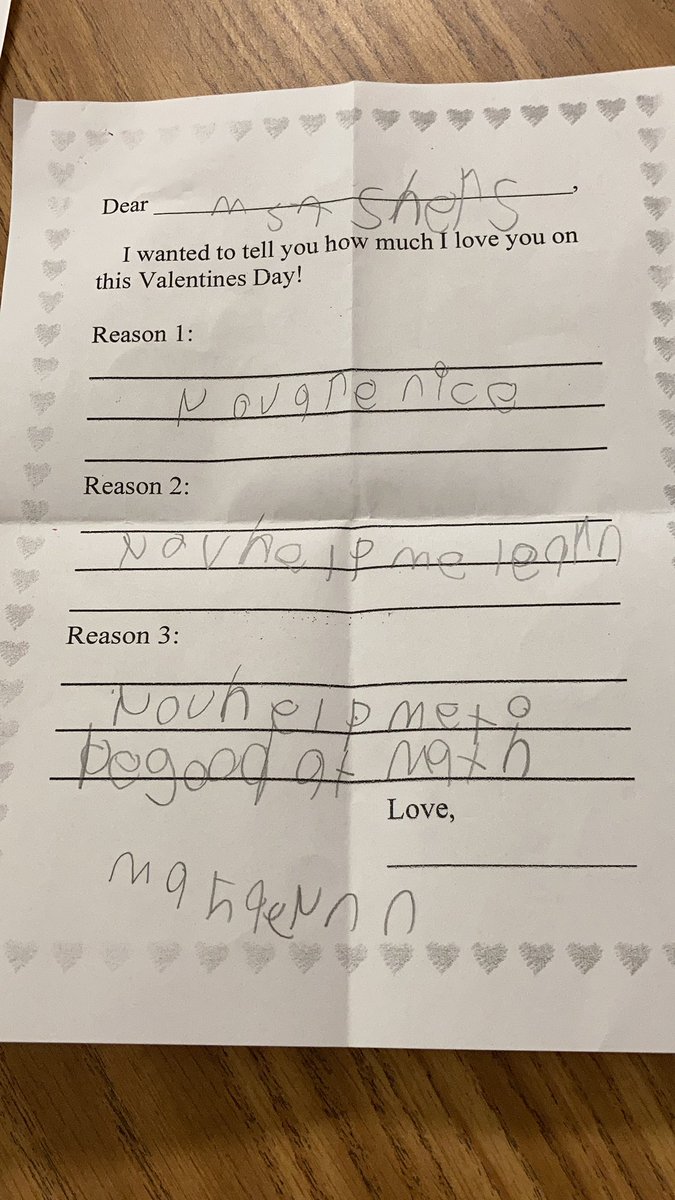 Dear msт shers,
I wanted to tell you how much I love you on
this Valentines Day!
Reason 1:
Nou are nice
Reason 2:
Nou help me learn
Reason 3:
Nou help me to
be good at math
Love,